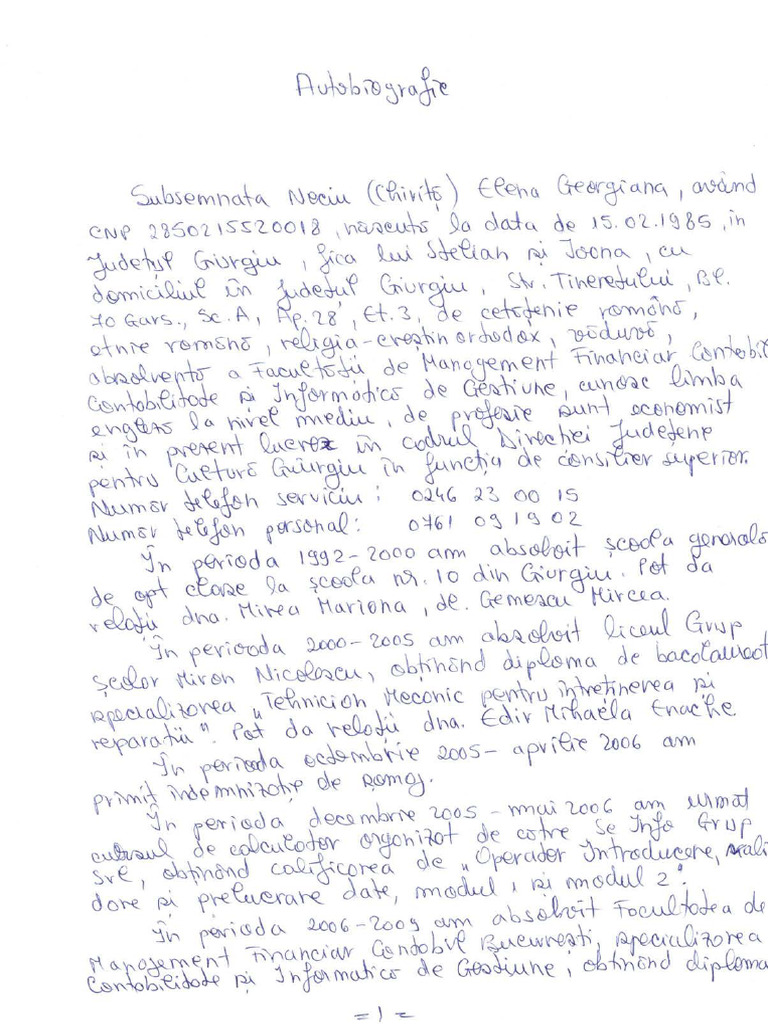 Autobiografie
Subsemnata Neciu (Chiriță) Elena Georgiana, având
CNP 2850215520018, născută la data de 15.02.1985, în
Județul Giurgiu, fica lui Stelian și Ioana, cu
domiciliul în Județul Giurgiu, Str. Tineretului, Bl.
70 Gars., Sc. A, Ap. 28, Et. 3, de cetățenie română,
etnie română, religia-creștin ortodox, văduvă,
absolventă a Facultății de Management Financiar Contabil
Contabilitate și Informatică de Gestiune, cunosc limba
engleză la nivel mediu, de profesie sunt economist
și în prezent lucrez în cadrul Direcției Județene
pentru Cultură Giurgiu în funcția de consilier superior.
Număr telefon serviciu: 0246 23 00 15
Număr telefon personal: 0761 09 19 02
În perioda 1992-2000 am absolvit școala generală
de opt clase la școala nr. 10 din Giurgiu. Pot da
relații dna. Mirea Mariana, dl. Gemescu Mircea.
În perioada 2000-2005 am absolvit liceul Grup
Școlar Miron Nicolescu, obținând diploma de bacalaureat
specializarea „Tehnician Mecanic pentru întreținerea și
reparații". Pot da relații dna. Edir Mihaela Enache
În perioda octombrie 2005- aprilie 2006 am
primit îndemnizație de șomaj.
În perioda decembrie 2005 - mai 2006 am urmat
cursul de calculator organizat de către Se Info Grup
SRL, obținând calificarea de „Operator Introducere, vali
dare și prelucrare date, modul 1 și modul 2".
În perioda 2006-2009 am absolvit Facultatea de
Management Financiar Contabil București, specializarea
Contabilitate și Informatică de Gestiune, obținând diploma
=1=